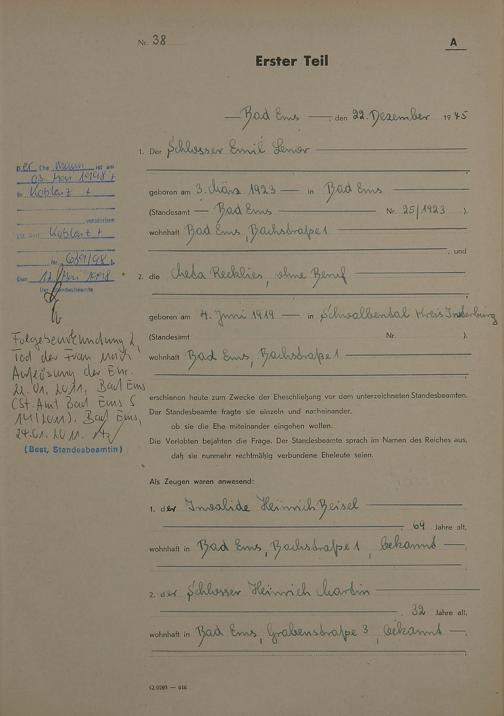 Nr. 38
A
Erster Teil
Bad Ems, den 22. Dezember 1945
1. Der Schlosser Emil Lenor
geboren am 3. März 1923 in Bad Ems
(Standesamt Bad Ems Nr. 25/1923 ).
wohnhaft Bad Ems, Bachstraße 1
, und
2. die Recklies, ohne Beruf
geboren am 4. Juni 1919 in Schwalbental Kreis Insterburg
(Standesamt Nr. ).
wohnhaft Bad Ems, Bachstraße 1
erschienen heute zum Zwecke der Eheschließung vor dem unterzeichneten Standesbeamten.
Der Standesbeamte fragte sie einzeln und nacheinander,
ob sie die Ehe miteinander eingehen wollen.
Die Verlobten bejahten die Frage. Der Standesbeamte sprach im Namen des Reiches aus,
daß sie nunmehr rechtmäßig verbundene Eheleute seien.
Als Zeugen waren anwesend:
1. der Invalide Heinrich Beisel
64 Jahre alt,
wohnhaft in Bad Ems, Bachstraße 1, bekannt
2. der Schlosser Heinrich Martin
32 Jahre alt,
wohnhaft in Bad Ems, Grabenstraße 3, bekannt
Der Ehe Mann ist am
03. Mai 1998
in Koblenz
verstorben
Koblenz
Nr. 689/98
Den 12. Mai 1998
Der Standesbeamte
Folgebeurkundung 2,
Tod der Frau nach
Auflösung der Ehe:
22.01.2011, Bad Ems
(St.Amt Bad Ems S
14/2011). Bad Ems,
24.01.2011.
(Best, Standesbeamtin)